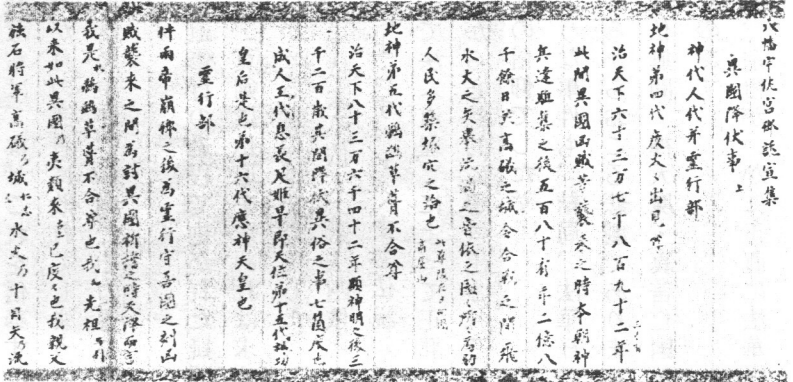 八幡宇佐宮御託宣集
異國降伏事 上
神代人代并霊行部
地神第四代彦火々出見尊
治天下六十三万七千八百九十二年
此間異國凶賊等襲来之時本朝神
兵達駈集之後五百八十箇年二億八
千餘日於高礒之城合合戰之間飛
水火之矢擧流
人民多築塚穴之路也
地神第五代鸕鷀草葺不合尊
治天下八十三万六千四十二年顯神明之後三
千二百歳其間降伏異俗之事七箇度也
成人王代息長足姫早即天位第十五代神功
皇后是也第十六代應神天皇也
霊行部
仲哀帝崩御之後為霊行守吾國之刻凶
賊襲来之間為討異國祈請之時天降而言
我是鸕鷀草葺不合尊也我先祖
以来如此異國乃夷類来已度々也我親父
石将軍高礒乃城水火乃十目矢乃流